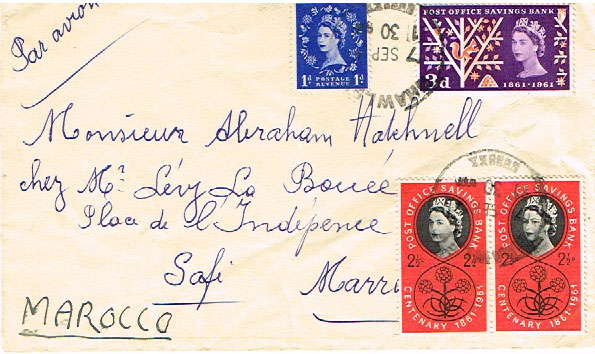 Par avion
1d POSTAGE REVENUE 1d
POST OFFICE SAVINGS BANK
3d
1861-1961
7 SEP
Monsieur Abraham Hatchnell
chez Mr. Lévy La Bouée
Place de l'Indépence
Safi Marr
MAROCCO
POST OFFICE SAVINGS BANK
2½D 2½D
CENTENARY 1861-1961
POST OFFICE SAVINGS BANK
2½D 2½D
CENTENARY 1861-1961